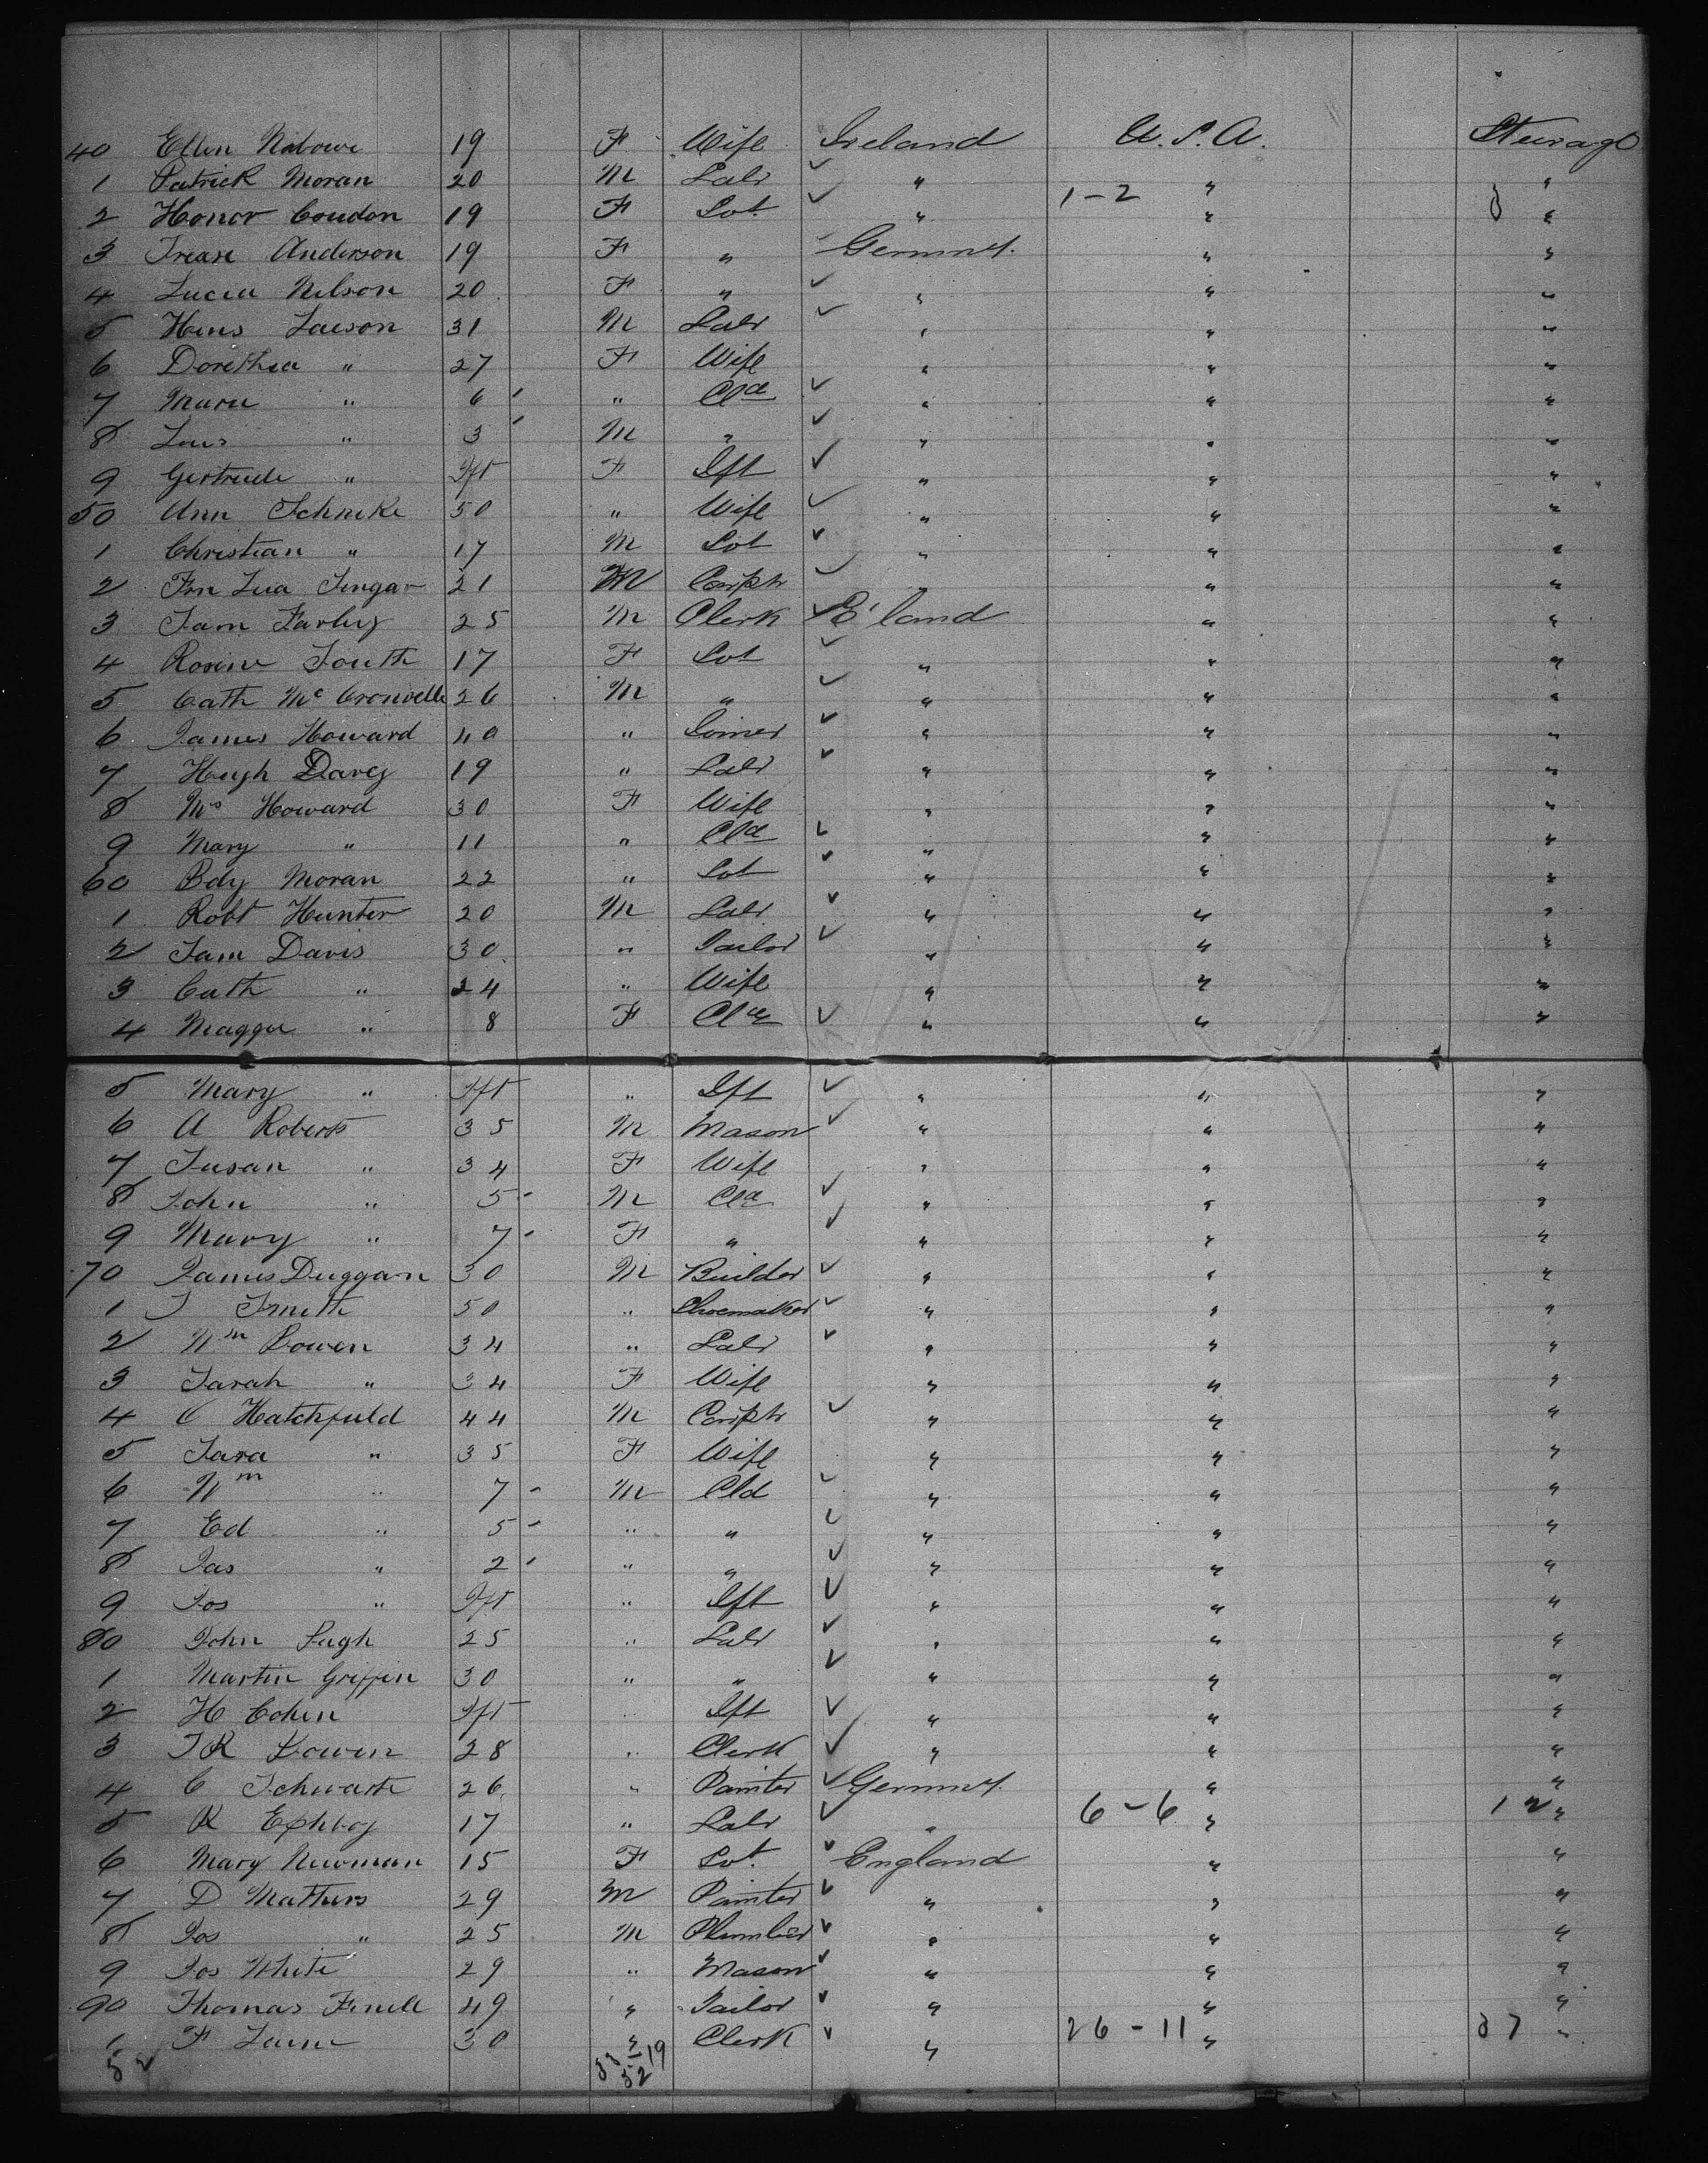 40 Ellen Nibowe 19 F Wife Ireland U.S.A. Steerage
1 Patrick Moran 20 M Labr " " "
1-2
2 Honor Condon 19 F Spt " " "
3 Trease Anderson 19 F " Germny. " "
4 Lucia Nilson 20 F " " " "
5 Hans Lawson 31 M Labr " " "
6 Dorethea " 27 F Wife " " "
7 Marie " 6 " Cld " " "
8 Lars " 3 M " " " "
9 Gertrude " Ift F Ift " " "
50 Ann Schneke 50 " Wife " " "
1 Christian " 17 M Spt " " "
2 21 M Carptr " " "
3 Sam Farley 25 M Clerk E'land " "
4 Rosine South 17 F Spt " " "
5 Cath Mc 26 M " " " "
6 James Howard 40 " Joiner " " "
7 Hugh Davey 19 " Labr " " "
8 Mrs Howard 30 F Wife " " "
9 Mary " 11 " Cld " " "
60 Bdy Moran 22 " Spt " " "
1 Robt Hunter 20 M Labr " " "
2 Sam Davis 30 " Tailor " " "
3 Cath " 24 " Wife " " "
4 Maggie " 8 F Cld " " "
5 Mary " Ift " Ift " " "
6 A Roberts 35 M Mason " " "
7 Susan " 34 F Wife " " "
8 John " 5 M Cld " " "
9 Mary " 7 F " " " "
70 James Duggan 30 M Builder " " "
1 J Smith 50 " Shoemaker " " "
2 Wm Bowen 34 " Labr " " "
3 Sarah " 34 F Wife " " "
4 C Hatchfield 44 M Carptr " " "
5 Sara " 35 F Wife " " "
6 Wm " 7 M Cld " " "
7 Ed " 5 " " " " "
8 Jas " 2 " " " " "
9 Jos " Ift " Ift " " "
80 John Pugh 25 " Labr " " "
1 Martin Griffin 30 " " " " "
2 H Cohen Ift " Ift " " "
3 J R Bowen 28 " Clerk " " "
4 C Schwartz 26 " Painter Germny. " "
6-6 12
5 R 17 " Labr " " "
6 Mary Newman 15 F Spt. England " "
7 D Mathers 29 M Painter " " "
8 Jos " 25 M Plumber " " "
9 Jos White 29 " Mason " " "
90 Thomas Finell 49 " Tailor " " "
26-11 37
1 F Laine 30 " Clerk " " "
52 33 19
52